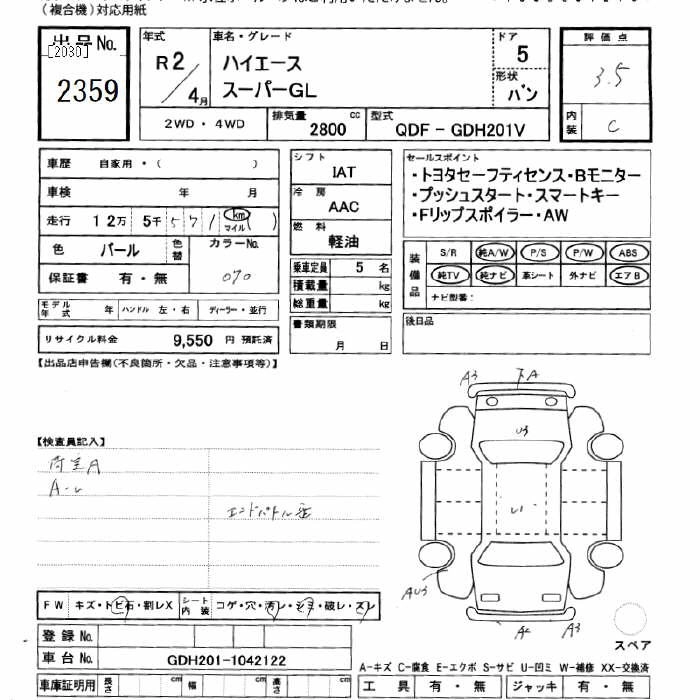 (複合機)対応用紙
出品No.
[2030]
2359
年式
R2/4月
車名・グレード
ハイエース
スーパーGL
ドア
5
形状
バン
評価点
3.5
内装
C
2WD・4WD
排気量
2800 cc
型式
QDF - GDH201V
車歴 自家用・( )
車検 年 月
走行 12万 5千 571 km マイル ( )
色 パール 色替
カラーNo.
070
保証書 有・無
モデル年式 年 ハンドル 左・右 ディーラー・並行
リサイクル料金 9,550 円 預託済
シフト
IAT
冷房
AAC
燃料
軽油
乗車定員 5 名
積載量 kg
総重量 kg
書類期限
月 日
セールスポイント
・トヨタセーフティセンス・Bモニター
・プッシュスタート・スマートキー
・Fリップスポイラー・AW
装備品
S/R 純A/W P/S P/W ABS
純TV 純ナビ 革シート 外ナビ エアB
ナビ型番:
後日品
【出品店申告欄(不良箇所・欠品・注意事項等)】
【検査員記入】
荷室A
A-U
A3
A
U3
U1
AU3
A2
A3
スペア
FW キズ・トビ石・割レX
シート内装 コゲ・穴・汚レ・シミ・破レ・スレ
登録No.
車台No. GDH201-1042122
車庫証明用 長さ cm 幅 cm 高さ cm
A-キズ C-腐食 E-エクボ S-サビ U-凹ミ W-補修 XX-交換済
工具 有・無 ジャッキ 有・無